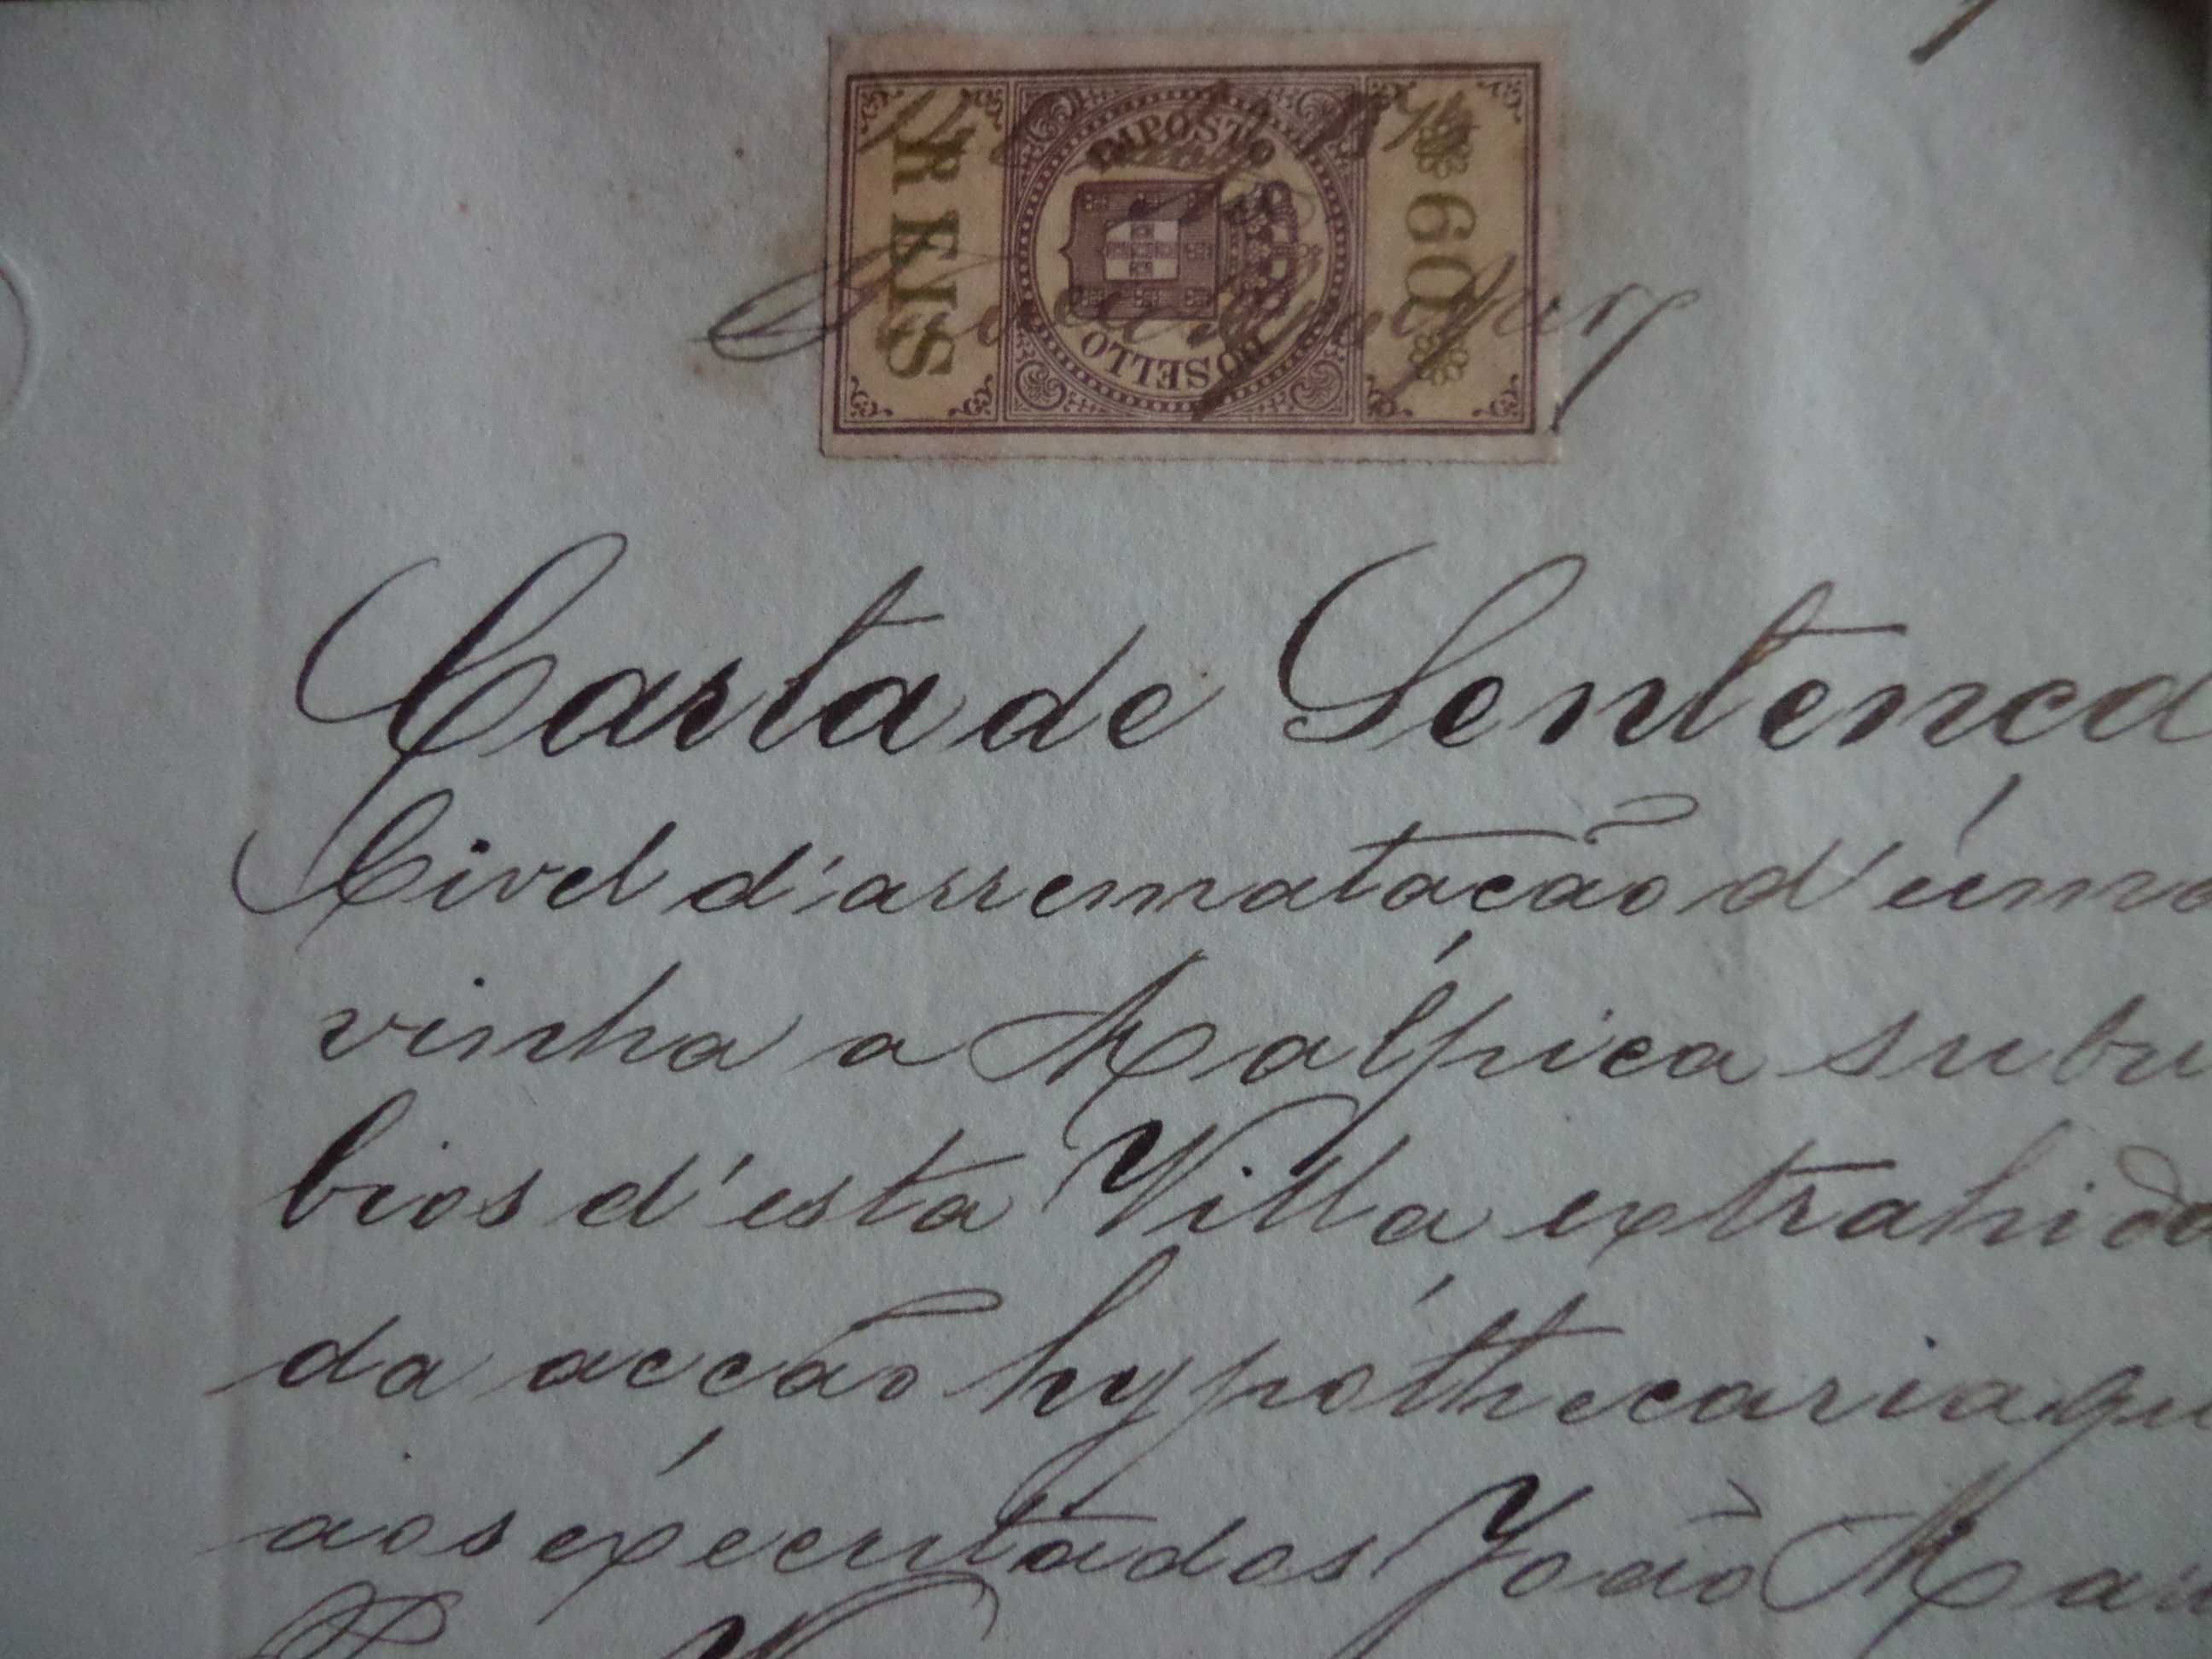 IMPOSTO
DO SELLO
RÉIS
60
Carta de Sentenca
Civel d'arrematação d'úma
vinha a Malpica subu
bios d'esta Villa extrahida
da acção hypóthecaria qu
aos éxecutados João Mau